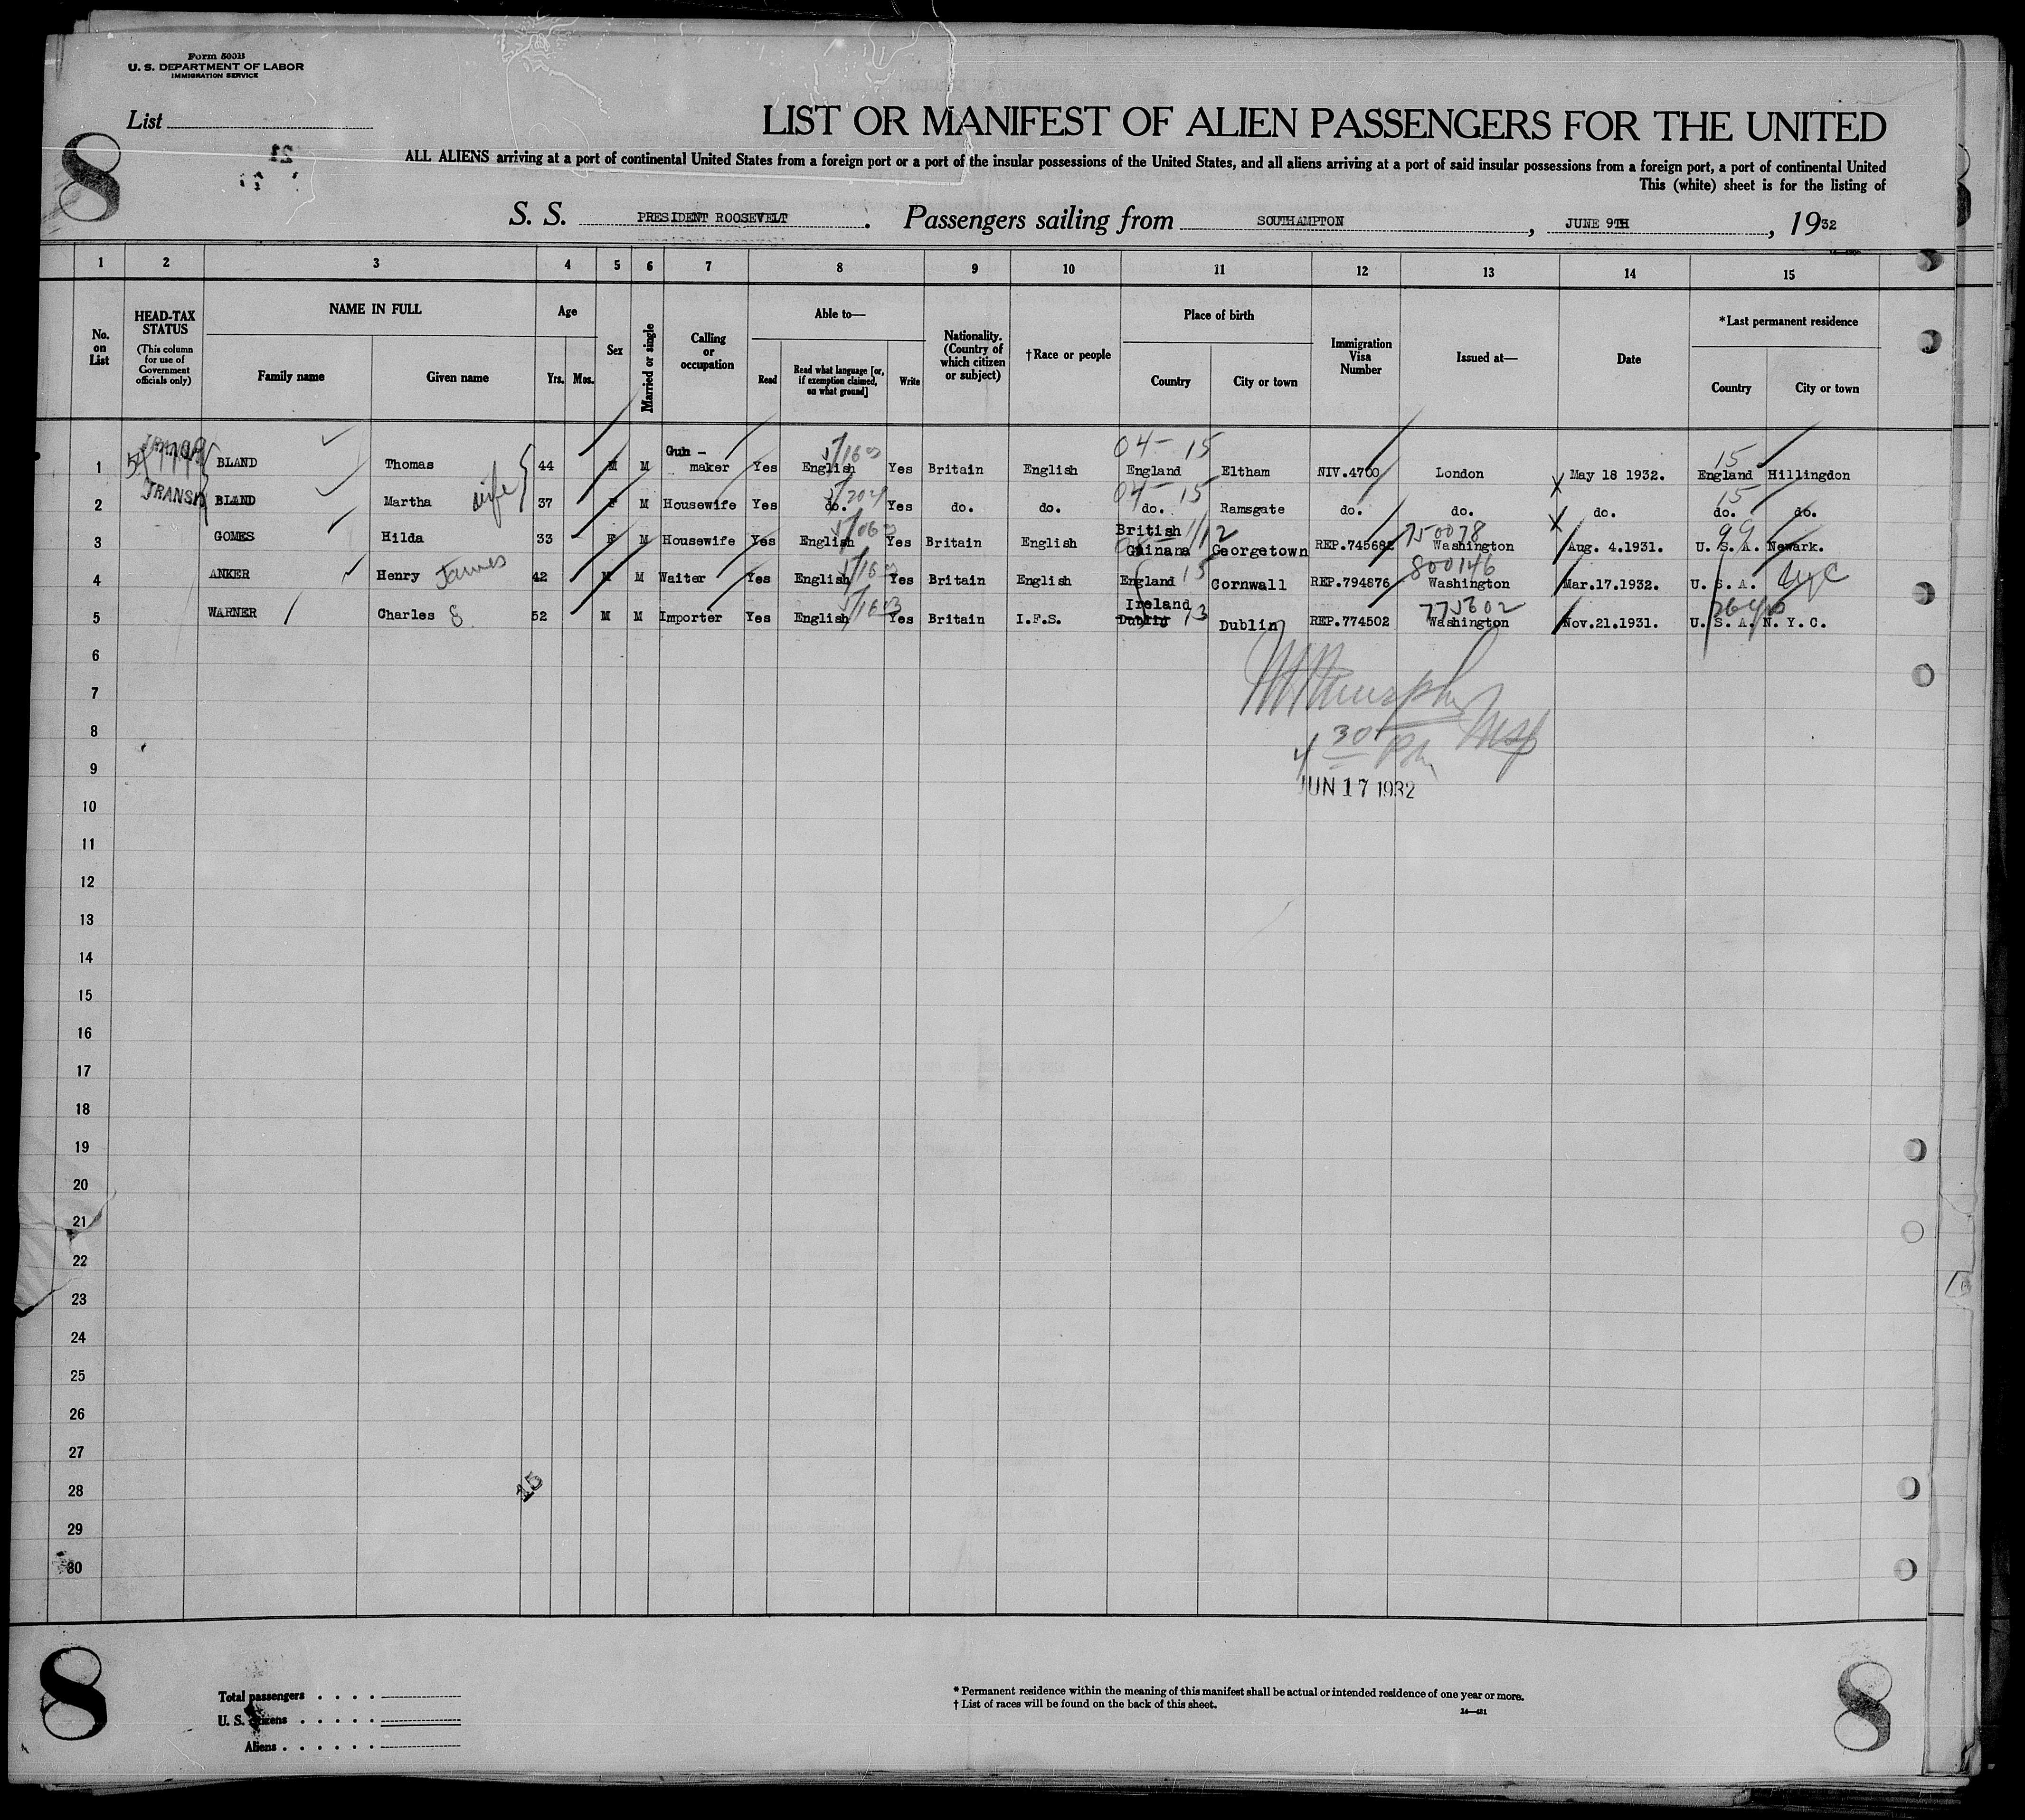 Form 500B
U. S. DEPARTMENT OF LABOR
IMMIGRATION SERVICE
List
8
LIST OR MANIFEST OF ALIEN PASSENGERS FOR THE UNITED
ALL ALIENS arriving at a port of continental United States from a foreign port or a port of the insular possessions of the United States, and all aliens arriving at a port of said insular possessions from a foreign port, a port of continental United
This (white) sheet is for the listing of
S. S. PRESIDENT ROOSEVELT. Passengers sailing from SOUTHAMPTON, JUNE 9TH, 1932
1 2 3 4 5 6 7 8 9 10 11 12 13 14 15
No. on List
HEAD-TAX STATUS
(This column for use of Government officials only)
NAME IN FULL
Family name Given name
Age
Yrs. Mos.
Sex
Married or single
Calling or occupation
Able to—
Read
Read what language [or, if exemption claimed, on what ground]
Write
Nationality. (Country of which citizen or subject)
†Race or people
Place of birth
Country City or town
Immigration Visa Number
Issued at—
Date
*Last permanent residence
Country City or town
04- 15 15
1 BLAND Thomas 44 M M Gun-maker Yes English Yes Britain English England Eltham NIV.4700 London May 18 1932. England Hillingdon
04- 15 15
2 TRANSIT BLAND Martha wife 37 F M Housewife Yes do. Yes do. do. do. Ramsgate do. do. do. do. do.
750078 99
3 GOMES Hilda 33 F M Housewife Yes English Yes Britain English British Guinana Georgetown REP.745682 Washington Aug. 4.1931. U. S. A. Newark.
800146
4 ANKER Henry James 42 M M Waiter Yes English Yes Britain English England 15 Cornwall REP.794876 Washington Mar.17.1932. U. S. A. NYC
775602
5 WARNER Charles 52 M M Importer Yes English Yes Britain I.F.S. Ireland Dublin 13 Dublin REP.774502 Washington Nov.21.1931. U. S. A. N. Y. C.
6
7
8
4 30 PM
9
JUN 17 1932
10
11
12
13
14
15
16
17
18
19
20
21
22
23
24
25
26
27
28
15
29
30
8
Total passengers . . . .
U. S. citizens . . . . .
Aliens . . . . . .
* Permanent residence within the meaning of this manifest shall be actual or intended residence of one year or more.
† List of races will be found on the back of this sheet.
14—431
8